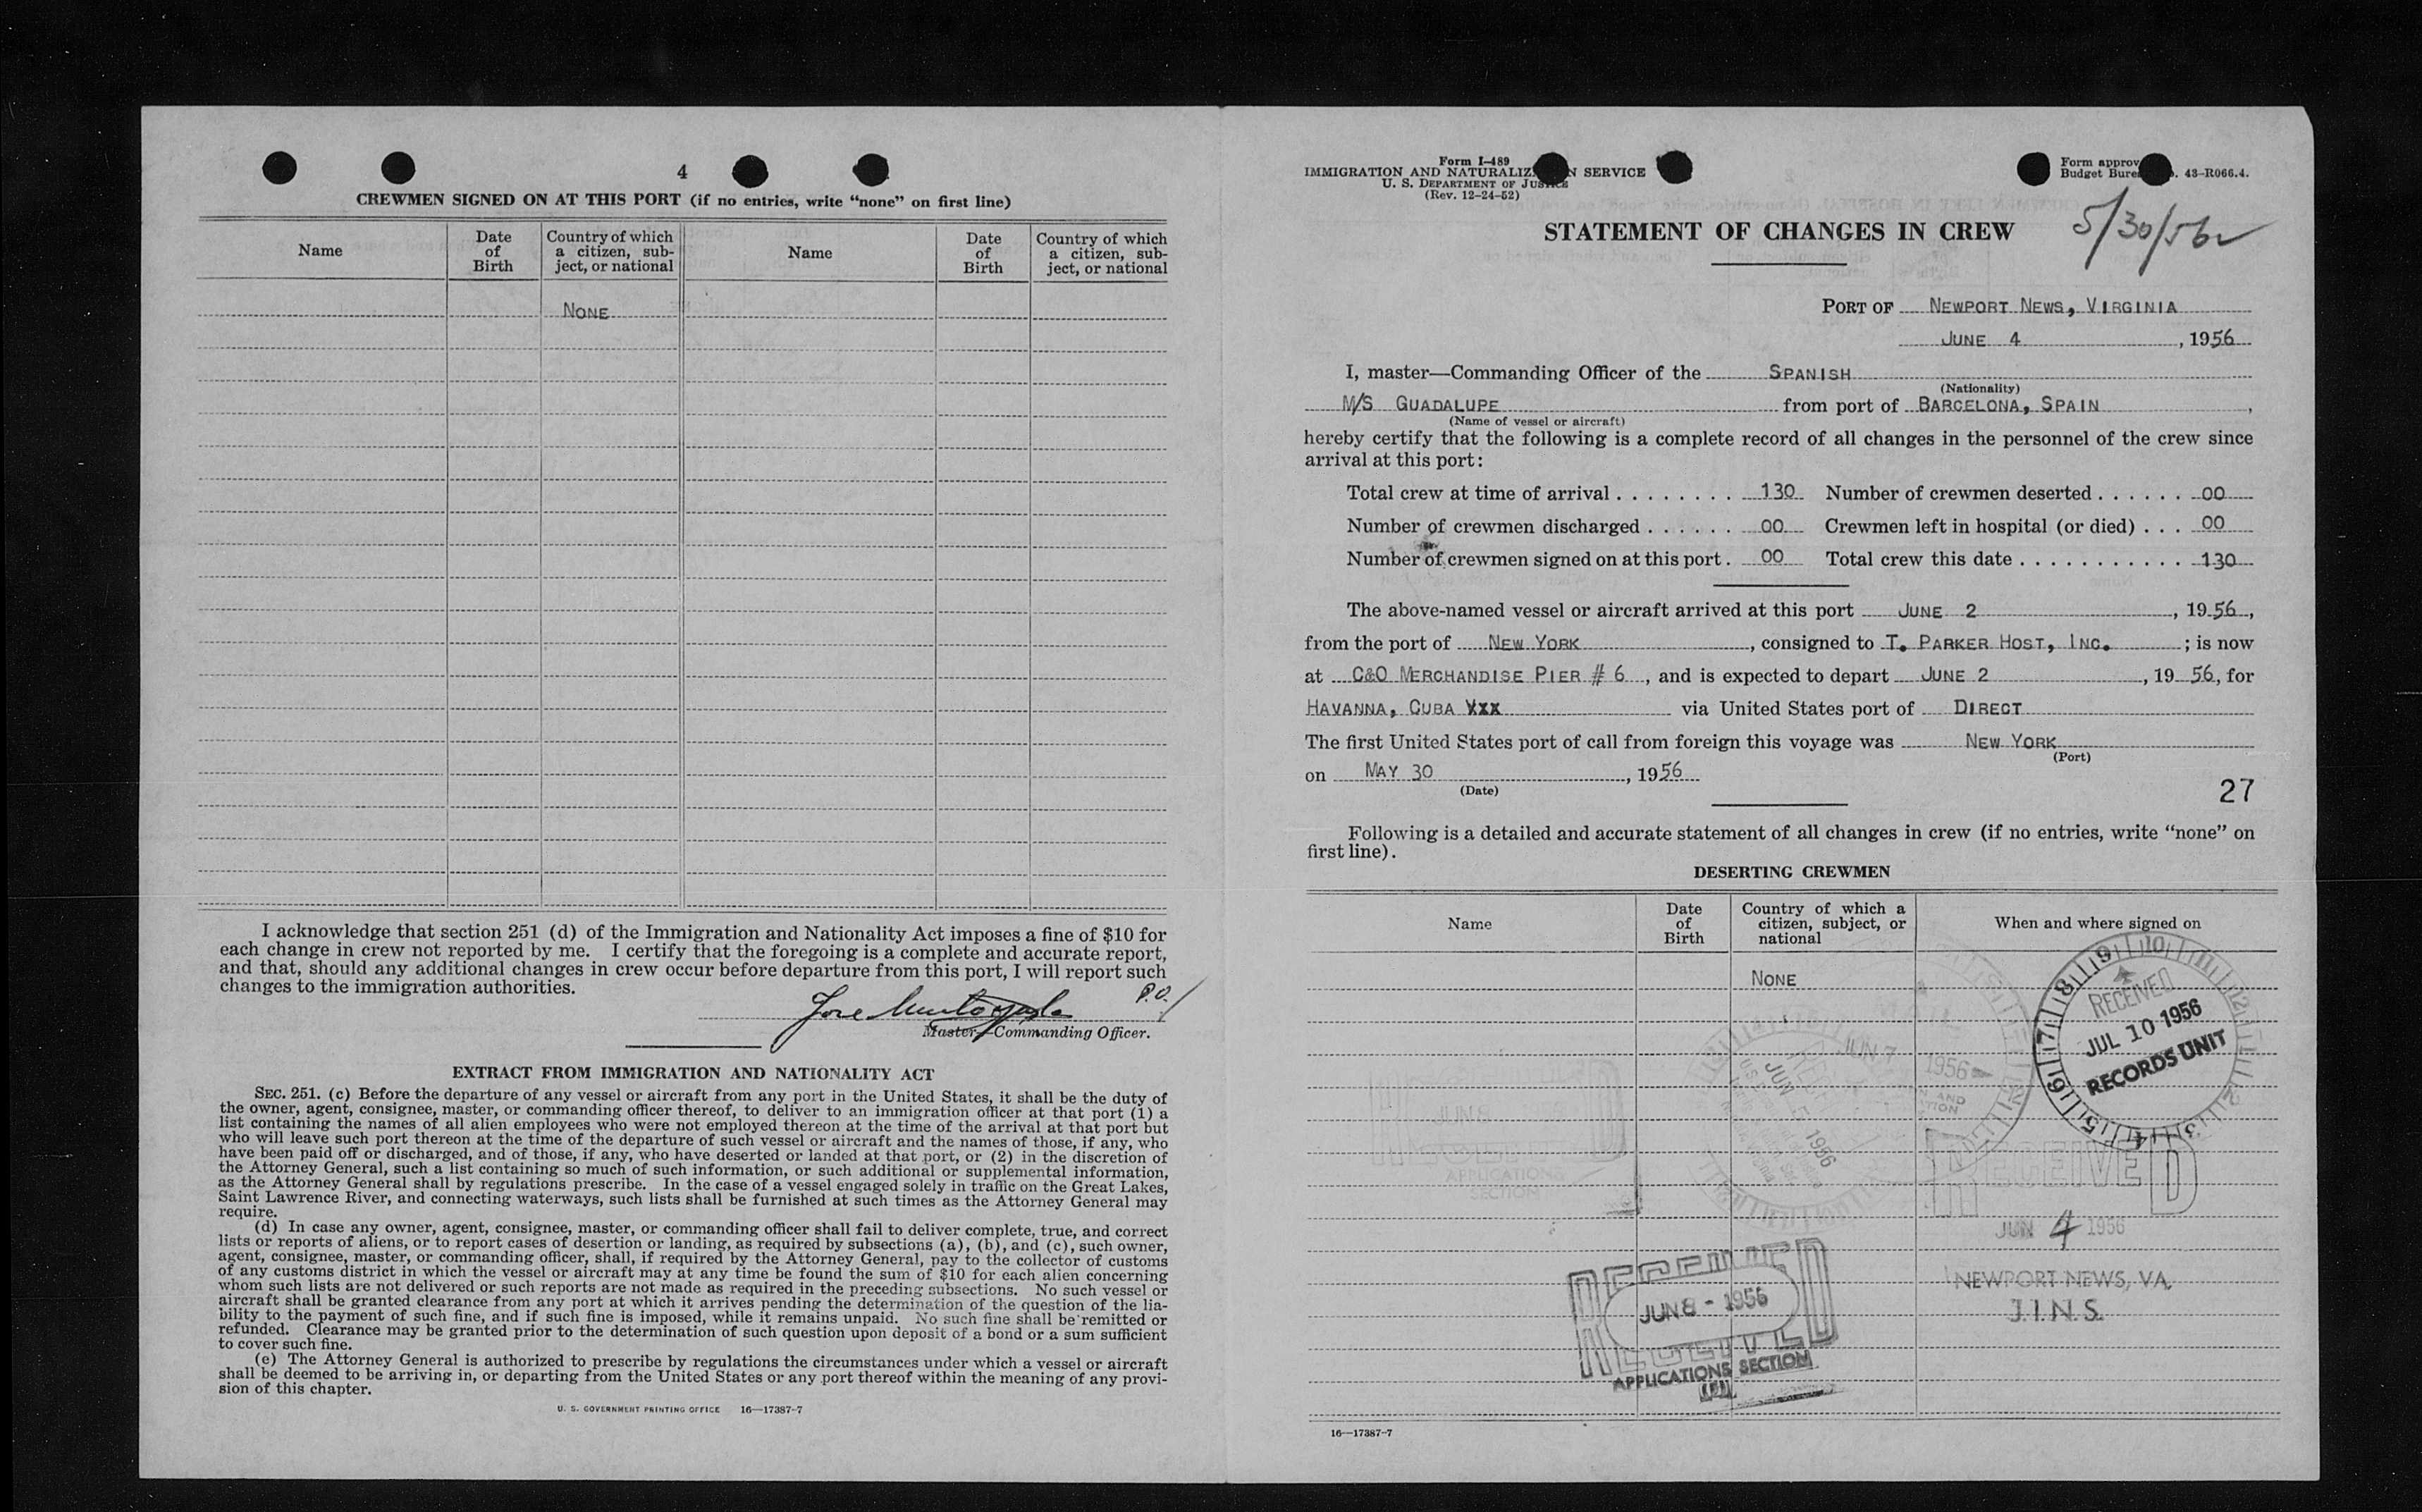 4
CREWMEN SIGNED ON AT THIS PORT (if no entries, write “none” on first line)
Name
Date of Birth
Country of which a citizen, subject, or national
Name
Date of Birth
Country of which a citizen, subject, or national
NONE
I acknowledge that section 251 (d) of the Immigration and Nationality Act imposes a fine of $10 for
each change in crew not reported by me. I certify that the foregoing is a complete and accurate report,
and that, should any additional changes in crew occur before departure from this port, I will report such
changes to the immigration authorities.
P.O.
Master—Commanding Officer.
EXTRACT FROM IMMIGRATION AND NATIONALITY ACT
SEC. 251. (c) Before the departure of any vessel or aircraft from any port in the United States, it shall be the duty of
the owner, agent, consignee, master, or commanding officer thereof, to deliver to an immigration officer at that port (1) a
list containing the names of all alien employees who were not employed thereon at the time of the arrival at that port but
who will leave such port thereon at the time of the departure of such vessel or aircraft and the names of those, if any, who
have been paid off or discharged, and of those, if any, who have deserted or landed at that port, or (2) in the discretion of
the Attorney General, such a list containing so much of such information, or such additional or supplemental information,
as the Attorney General shall by regulations prescribe. In the case of a vessel engaged solely in traffic on the Great Lakes,
Saint Lawrence River, and connecting waterways, such lists shall be furnished at such times as the Attorney General may
require.
(d) In case any owner, agent, consignee, master, or commanding officer shall fail to deliver complete, true, and correct
lists or reports of aliens, or to report cases of desertion or landing, as required by subsections (a), (b), and (c), such owner,
agent, consignee, master, or commanding officer, shall, if required by the Attorney General, pay to the collector of customs
of any customs district in which the vessel or aircraft may at any time be found the sum of $10 for each alien concerning
whom such lists are not delivered or such reports are not made as required in the preceding subsections. No such vessel or
aircraft shall be granted clearance from any port at which it arrives pending the determination of the question of the lia-
bility to the payment of such fine, and if such fine is imposed, while it remains unpaid. No such fine shall be remitted or
refunded. Clearance may be granted prior to the determination of such question upon deposit of a bond or a sum sufficient
to cover such fine.
(e) The Attorney General is authorized to prescribe by regulations the circumstances under which a vessel or aircraft
shall be deemed to be arriving in, or departing from the United States or any port thereof within the meaning of any provi-
sion of this chapter.
U. S. GOVERNMENT PRINTING OFFICE 16—17387-7
Form I-489
IMMIGRATION AND NATURALIZ N SERVICE
U. S. DEPARTMENT OF JUSTICE
(Rev. 12-24-52)
Form approv
Budget Bure . 43-R066.4.
STATEMENT OF CHANGES IN CREW
5/30/56
PORT OF NEWPORT NEWS, VIRGINIA
JUNE 4, 1956
I, master—Commanding Officer of the SPANISH
(Nationality)
M/S GUADALUPE from port of BARCELONA, SPAIN,
(Name of vessel or aircraft)
hereby certify that the following is a complete record of all changes in the personnel of the crew since
arrival at this port:
Total crew at time of arrival . . . . . . . . 130 Number of crewmen deserted . . . . . . 00
Number of crewmen discharged . . . . . . 00 Crewmen left in hospital (or died) . . . 00
Number of crewmen signed on at this port . 00 Total crew this date . . . . . . . . . . . 130
The above-named vessel or aircraft arrived at this port JUNE 2, 1956,
from the port of NEW YORK, consigned to T. PARKER HOST, INC. ; is now
at C&O MERCHANDISE PIER # 6, and is expected to depart JUNE 2, 1956, for
HAVANNA, CUBA VXX via United States port of DIRECT
The first United States port of call from foreign this voyage was NEW YORK
(Port)
on MAY 30, 1956
(Date)
27
Following is a detailed and accurate statement of all changes in crew (if no entries, write “none” on
first line).
DESERTING CREWMEN
Name
Date of Birth
Country of which a citizen, subject, or national
When and where signed on
NONE
RECEIVED
JUL 10 1956
RECORDS UNIT
JUN 7 1956
JUN 5 1956
JUN 8
APPLICATIONS
SECTION
RECEIVED
JUN 4 1956
NEWPORT NEWS, VA.
RECEIVED
JUN 8 - 1956
RECEIVED
APPLICATIONS SECTION
16—17387-7